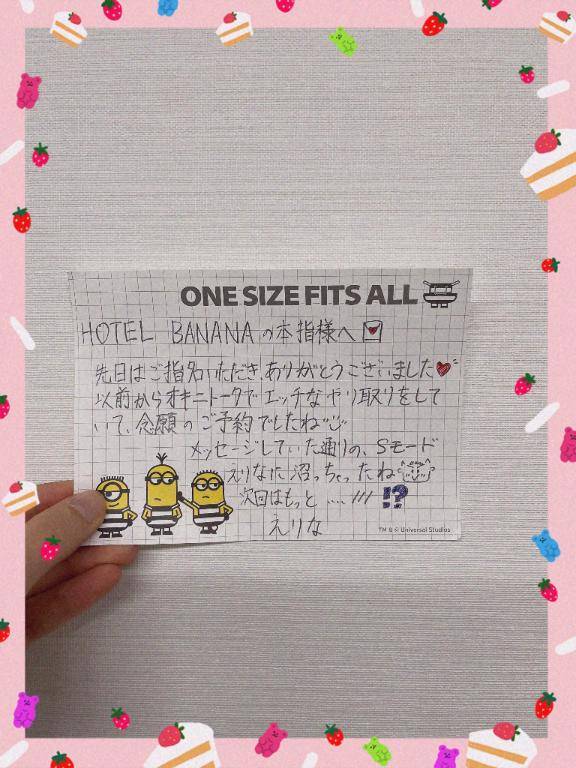 ONE SIZE FITS ALL
HOTEL BANANAの本指様へ
先日はご指名いただき、ありがとうございました
以前からオキニトークでエッチなやり取りをして
いて、念願のご予約でしたね
メッセージしていた通りの、Sモード
えりなに沼っちゃったね
次回はもっと....///!?
えりな
TM & © Universal Studios